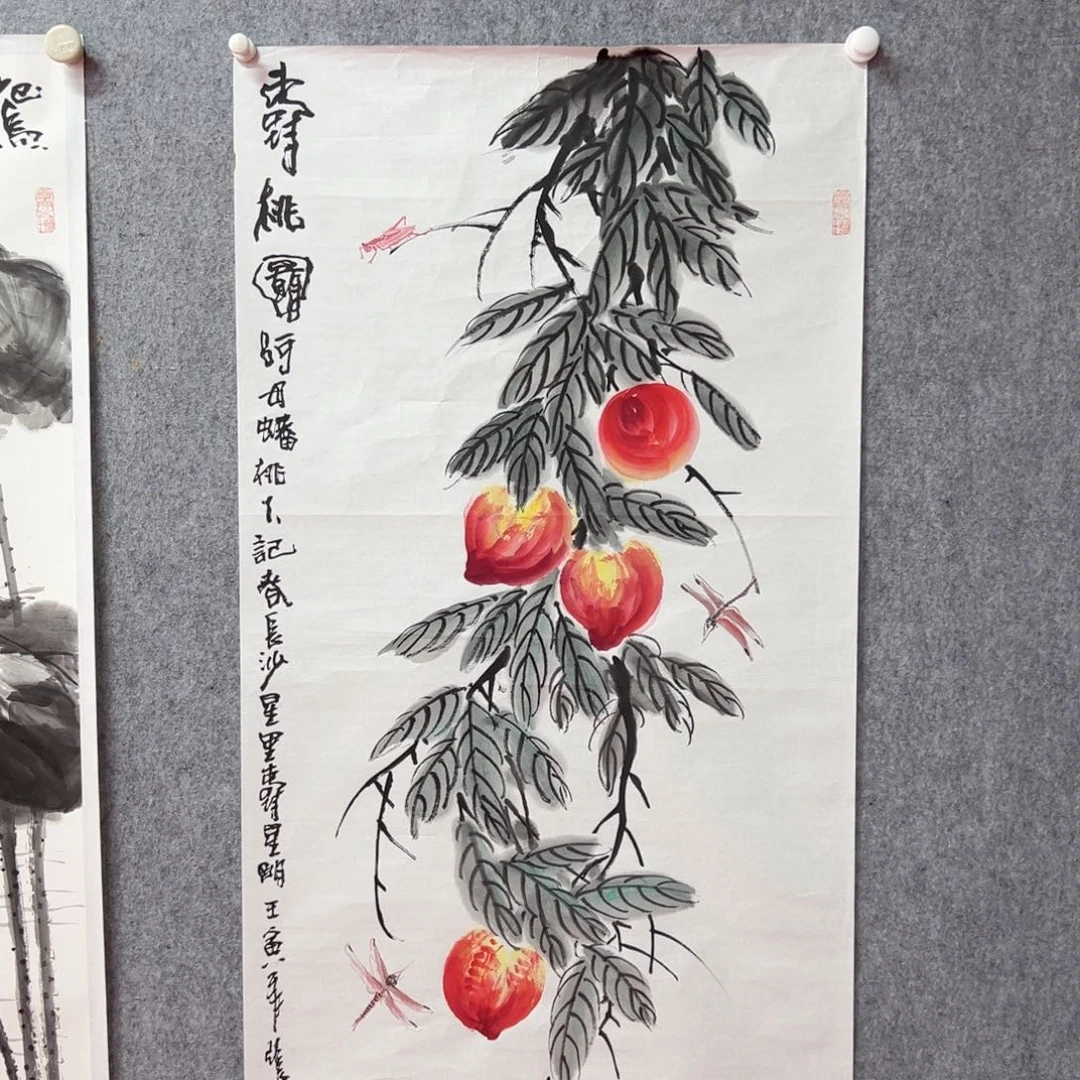 壽桃圖阿母蟠桃不記春長沙星里壽星明壬寅年張